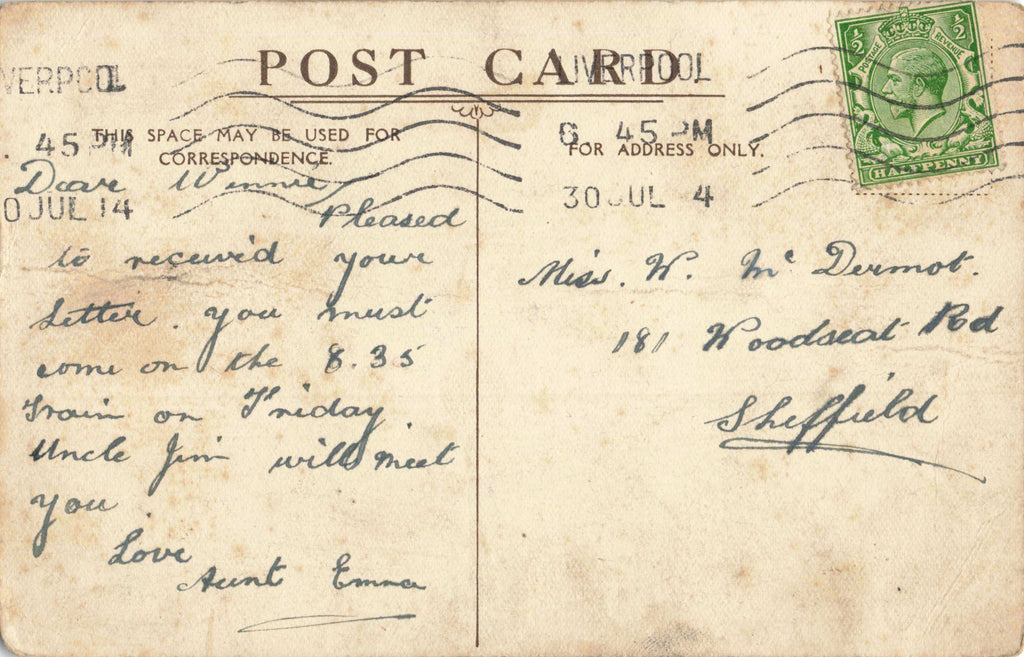 POST CARD
LIVERPOOL
VERPOOL
6 45 PM
45 PM
30 JUL 4
0 JUL 14
THIS SPACE MAY BE USED FOR
CORRESPONDENCE.
FOR ADDRESS ONLY.
½ ½
POSTAGE REVENUE
HALFPENNY
Dear Winnie
Pleased
to receive'd your
Letter. you must
come on the 8.35
Train on Friday
Uncle Jim will meet
you
Love
Aunt Emma
Miss. W. Mc Dermot.
181 Woodseat Rd
Sheffield